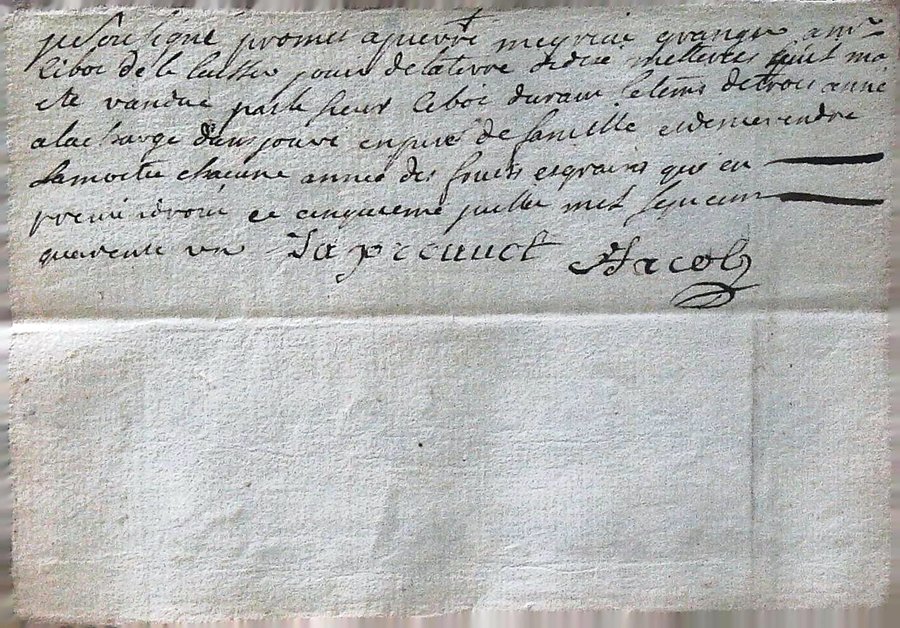 je sousigné promet a pierre megrine granger a mr
liboi de le laisser jouir de la terre didié metterets quil ma
ete vandue par le sieur liboi durant le tems de trois anné
a la charge dans jouir en pere de famille et de me rendre
la moetie chacune année des fruits et grains qui en
preuvi idroni ce cinquieme juillet mil sept cent
quarente un Japreuuet FJacob